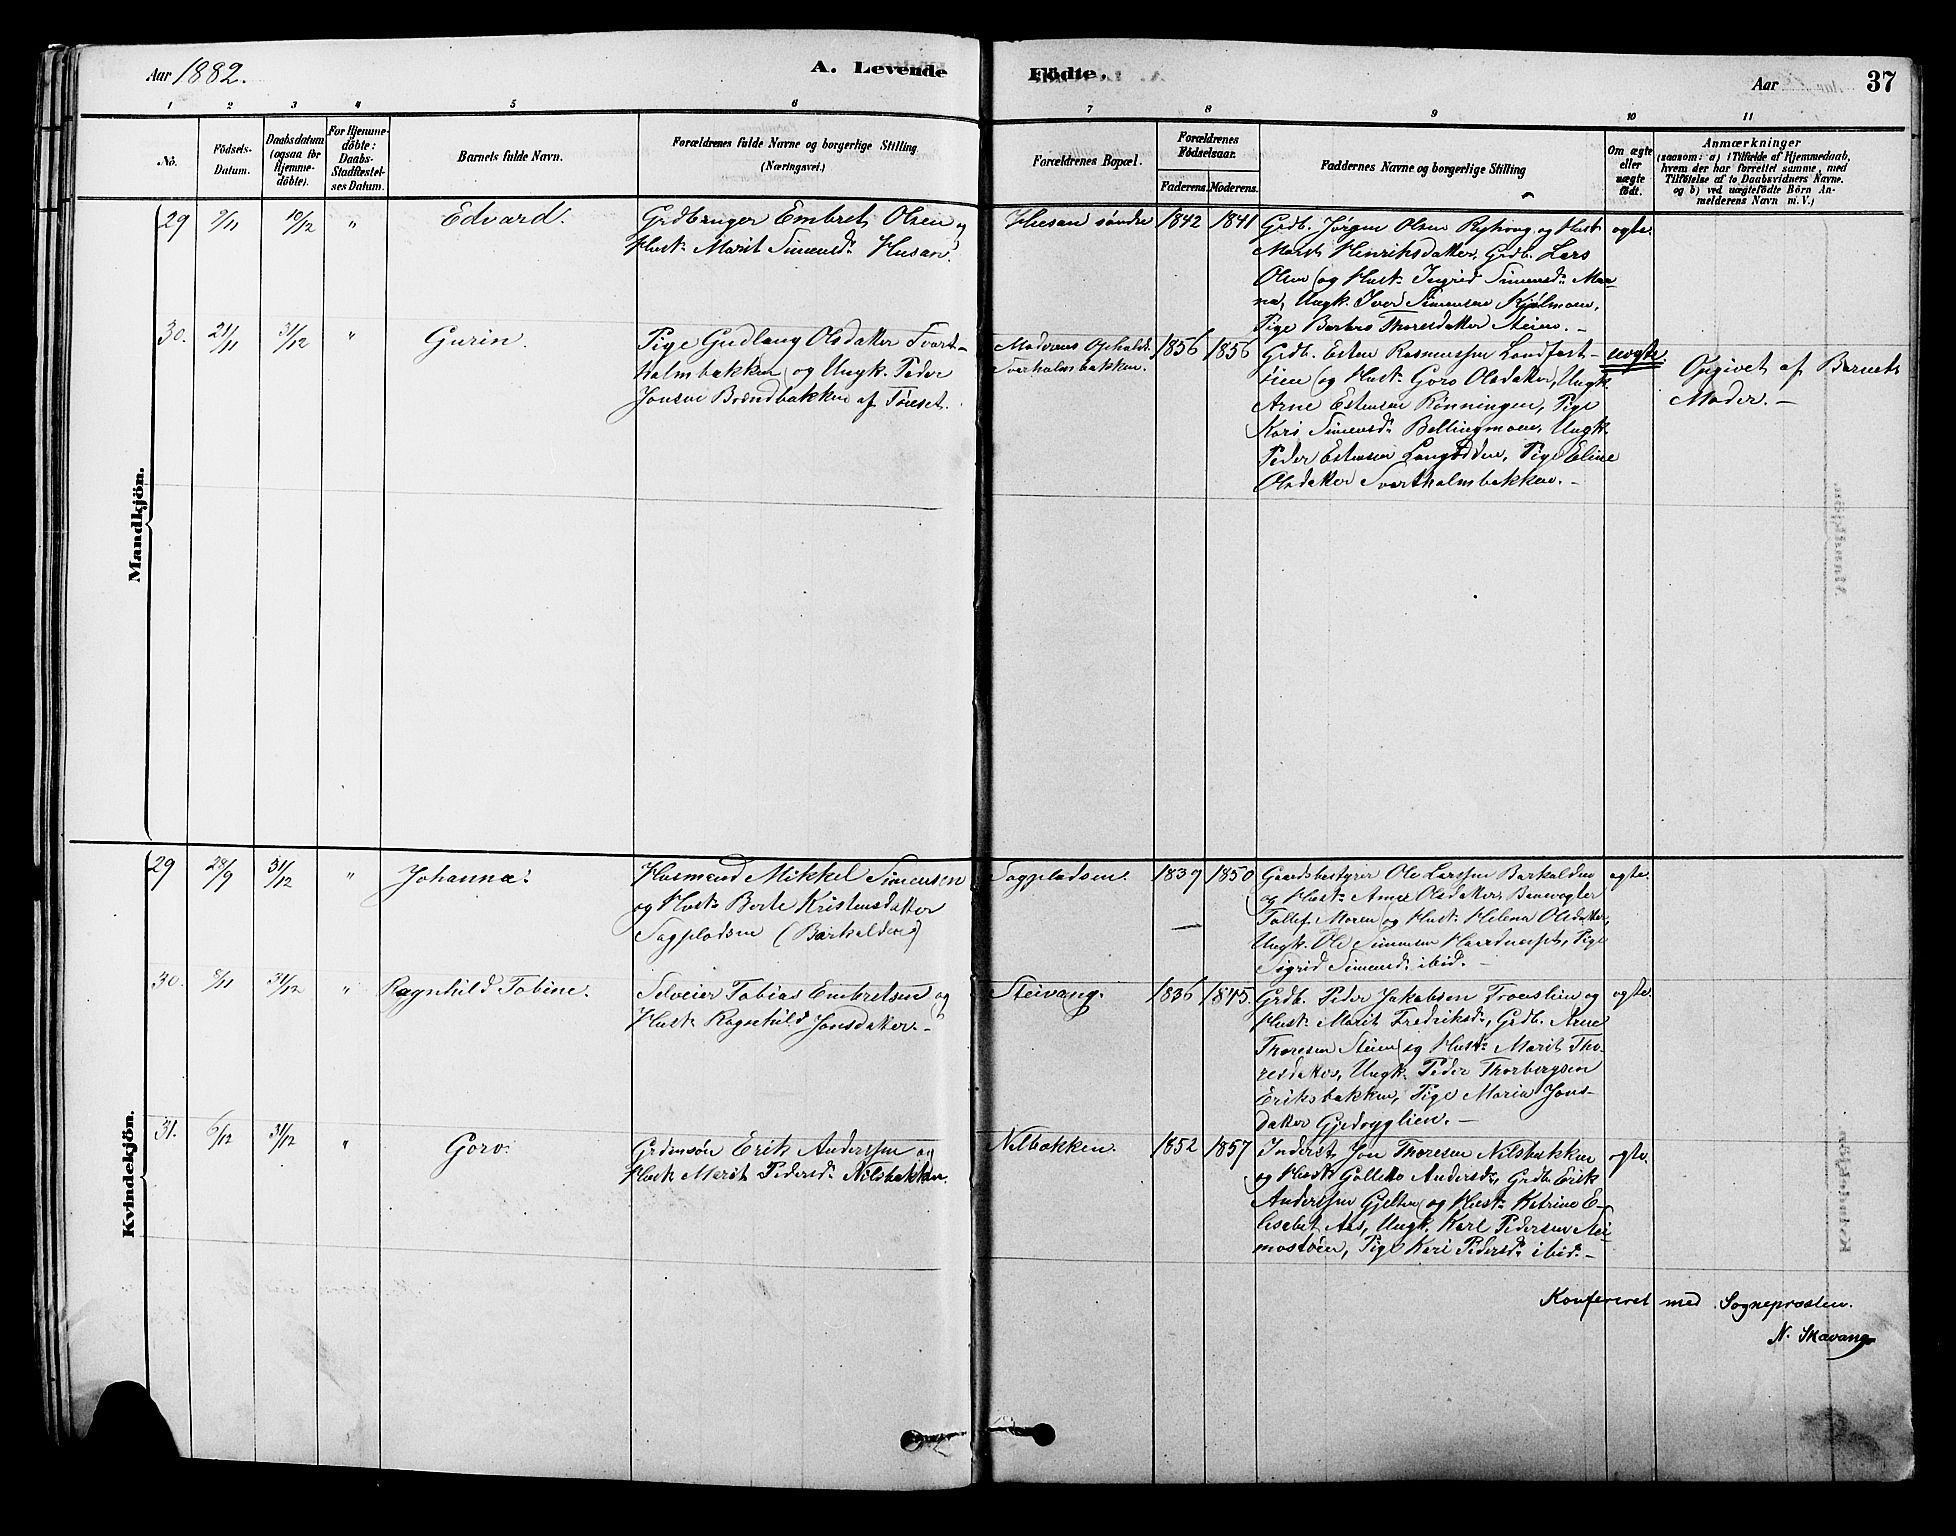 Aar 1882.
A. Levende
Födte,
Aar
37
1 2 3 4 5 6 7 8 9 10 11
No.
Födsels-
Datum.
Daabsdatum
(ogsaa for
Hjemme-
döbte).
For Hjemme-
döbte:
Daabs-
Stadfæstel-
ses Datum.
Barnets fulde Navn.
Forældrenes fulde Navne og borgerlige Stilling
(Næringsvei).
Forældrenes Bopæl.
Forældrenes
Födselsaar.
Faderens. Moderens.
Faddernes Navne og borgerlige Stilling
Om ægte
eller
uægte
födt.
Anmærkninger
(saasom: a) i Tilfælde af Hjemmedaab,
hvem der har forrettet samme, med
Tilföielse af to Daabsvidners Navne.
og b) ved uægtefödte Börn An-
melderens Navn m. V.)
Mandkjön.
29 9/11 10/12 " Edvard.
Grdbruger Embret Olsen og
Hust. Marit Simensd. Husan.
Husan søndre 1842 1841
Grdb. Jørgen Olsen Ryhaug og Hust.
Marit Henriksdatter, Grdb. Lars
Olsen og Hust. Ingrid Simensd.
Ungk. Iver Simensen Kjølmoen,
Pige Barbro Thoresdatter Steien. -
ægte.
30. 21/11 31/12 " Gurin.
Pige Gudlaug Olsdatter Svart-
holmbakken og Ungk. Peder
Jonsen Brændbakken af Tönset.
Moderens Ophold.
Sverholmbakken.
1856 1856
Grdb. Esten Rasmussen Landfast-
øien og Hust. Goro Olsdatter, Ungk.
Arne Estensen Rønningen, Pige
Kari Simensd. Bellingmoen, Ungk.
Peder Estensen Langodden, Pige Eline
Olsdatter Svartholmbakken. -
uægte
Opgivet af Barnets
Moder. -
Kvindekjön.
29 28/9 31/12 " Johanna.
Husmand Mikkel Simensen
og Hust. Berte Kristensdatter
Sagpladsen (Barkalden)
Sagpladsen. 1837 1850
Gaardsbestyrer Ole Larssen Barkalden
og Hust. Anne Olsdatter, Banevogter
Tollef Moren og Hust. Helena Olsdatter,
Ungk. Ole Simensen Pige
Sigrid Simensd. ibid. -
ægte.
30. 8/11 31/12 " Ragnhild Tobine.
Selveier Tobias Embretsen og
Hust. Ragnhild Jonsdatter. -
Steivang. 1836 1845.
Grdb. Peder Jakobsen Tronslien og
Hust. Marit Fredriksd., Grdb. Arne
Thoresen Steien og Hust. Marit Tho-
resdatter, Ungk. Peder Thorbergsen
Eriksbakken, Pige Maria Jons-
datter Gjedryglien. -
ægte.
31. 6/12 31/12 " Goro.
Grdmsön Erik Anderssen og
Hust. Marit Pedersd. Nilsbakken.
Nilbakken. 1852 1857
Inderst Jon Thoresen Nilsbakken
og Hust. Andersd., Grdb. Erik
Anderssen Gjelten og Hust. Katrine E-
lisabet Aas, Ungk. Karl Pedersen Nei-
mostøien, Pige Kari Pedersd. ibid. -
ægte.
Konfereret med Sognepresten.
N. Skavang